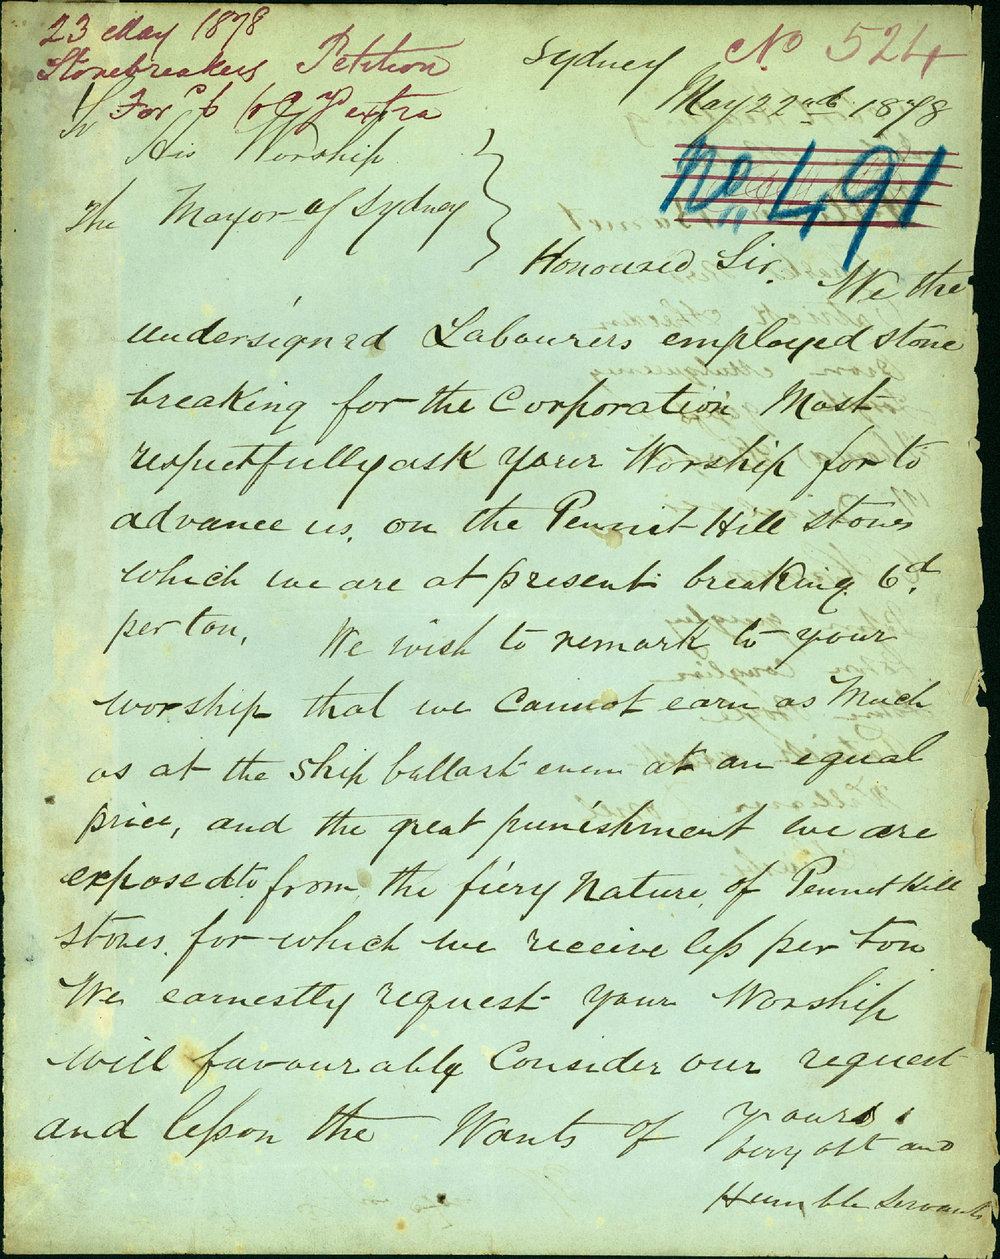 23 May 1878
Stonebreakers Petition
For extra
No 524
Sydney
May 22nd 1878
To
His Worship
The Mayor of Sydney
No 491
Honoured Sir. We the
undersigned Labourers employed stone
breaking for the Corporation Most
respectfully ask your Worship for to
advance us, on the Pennet Hill stones
which we are at present breaking 6d.
per ton. We wish to remark to your
worship that we cannot earn as Much
as at the ship ballast even at an equal
price, and the great punishment we are
exposed to from the fiery nature of Pennet Hill
stones for which we receive less per ton
We earnestly request your Worship
will favourably Consider our request
and lesson the Wants of yours
very obt and
Humble Servants